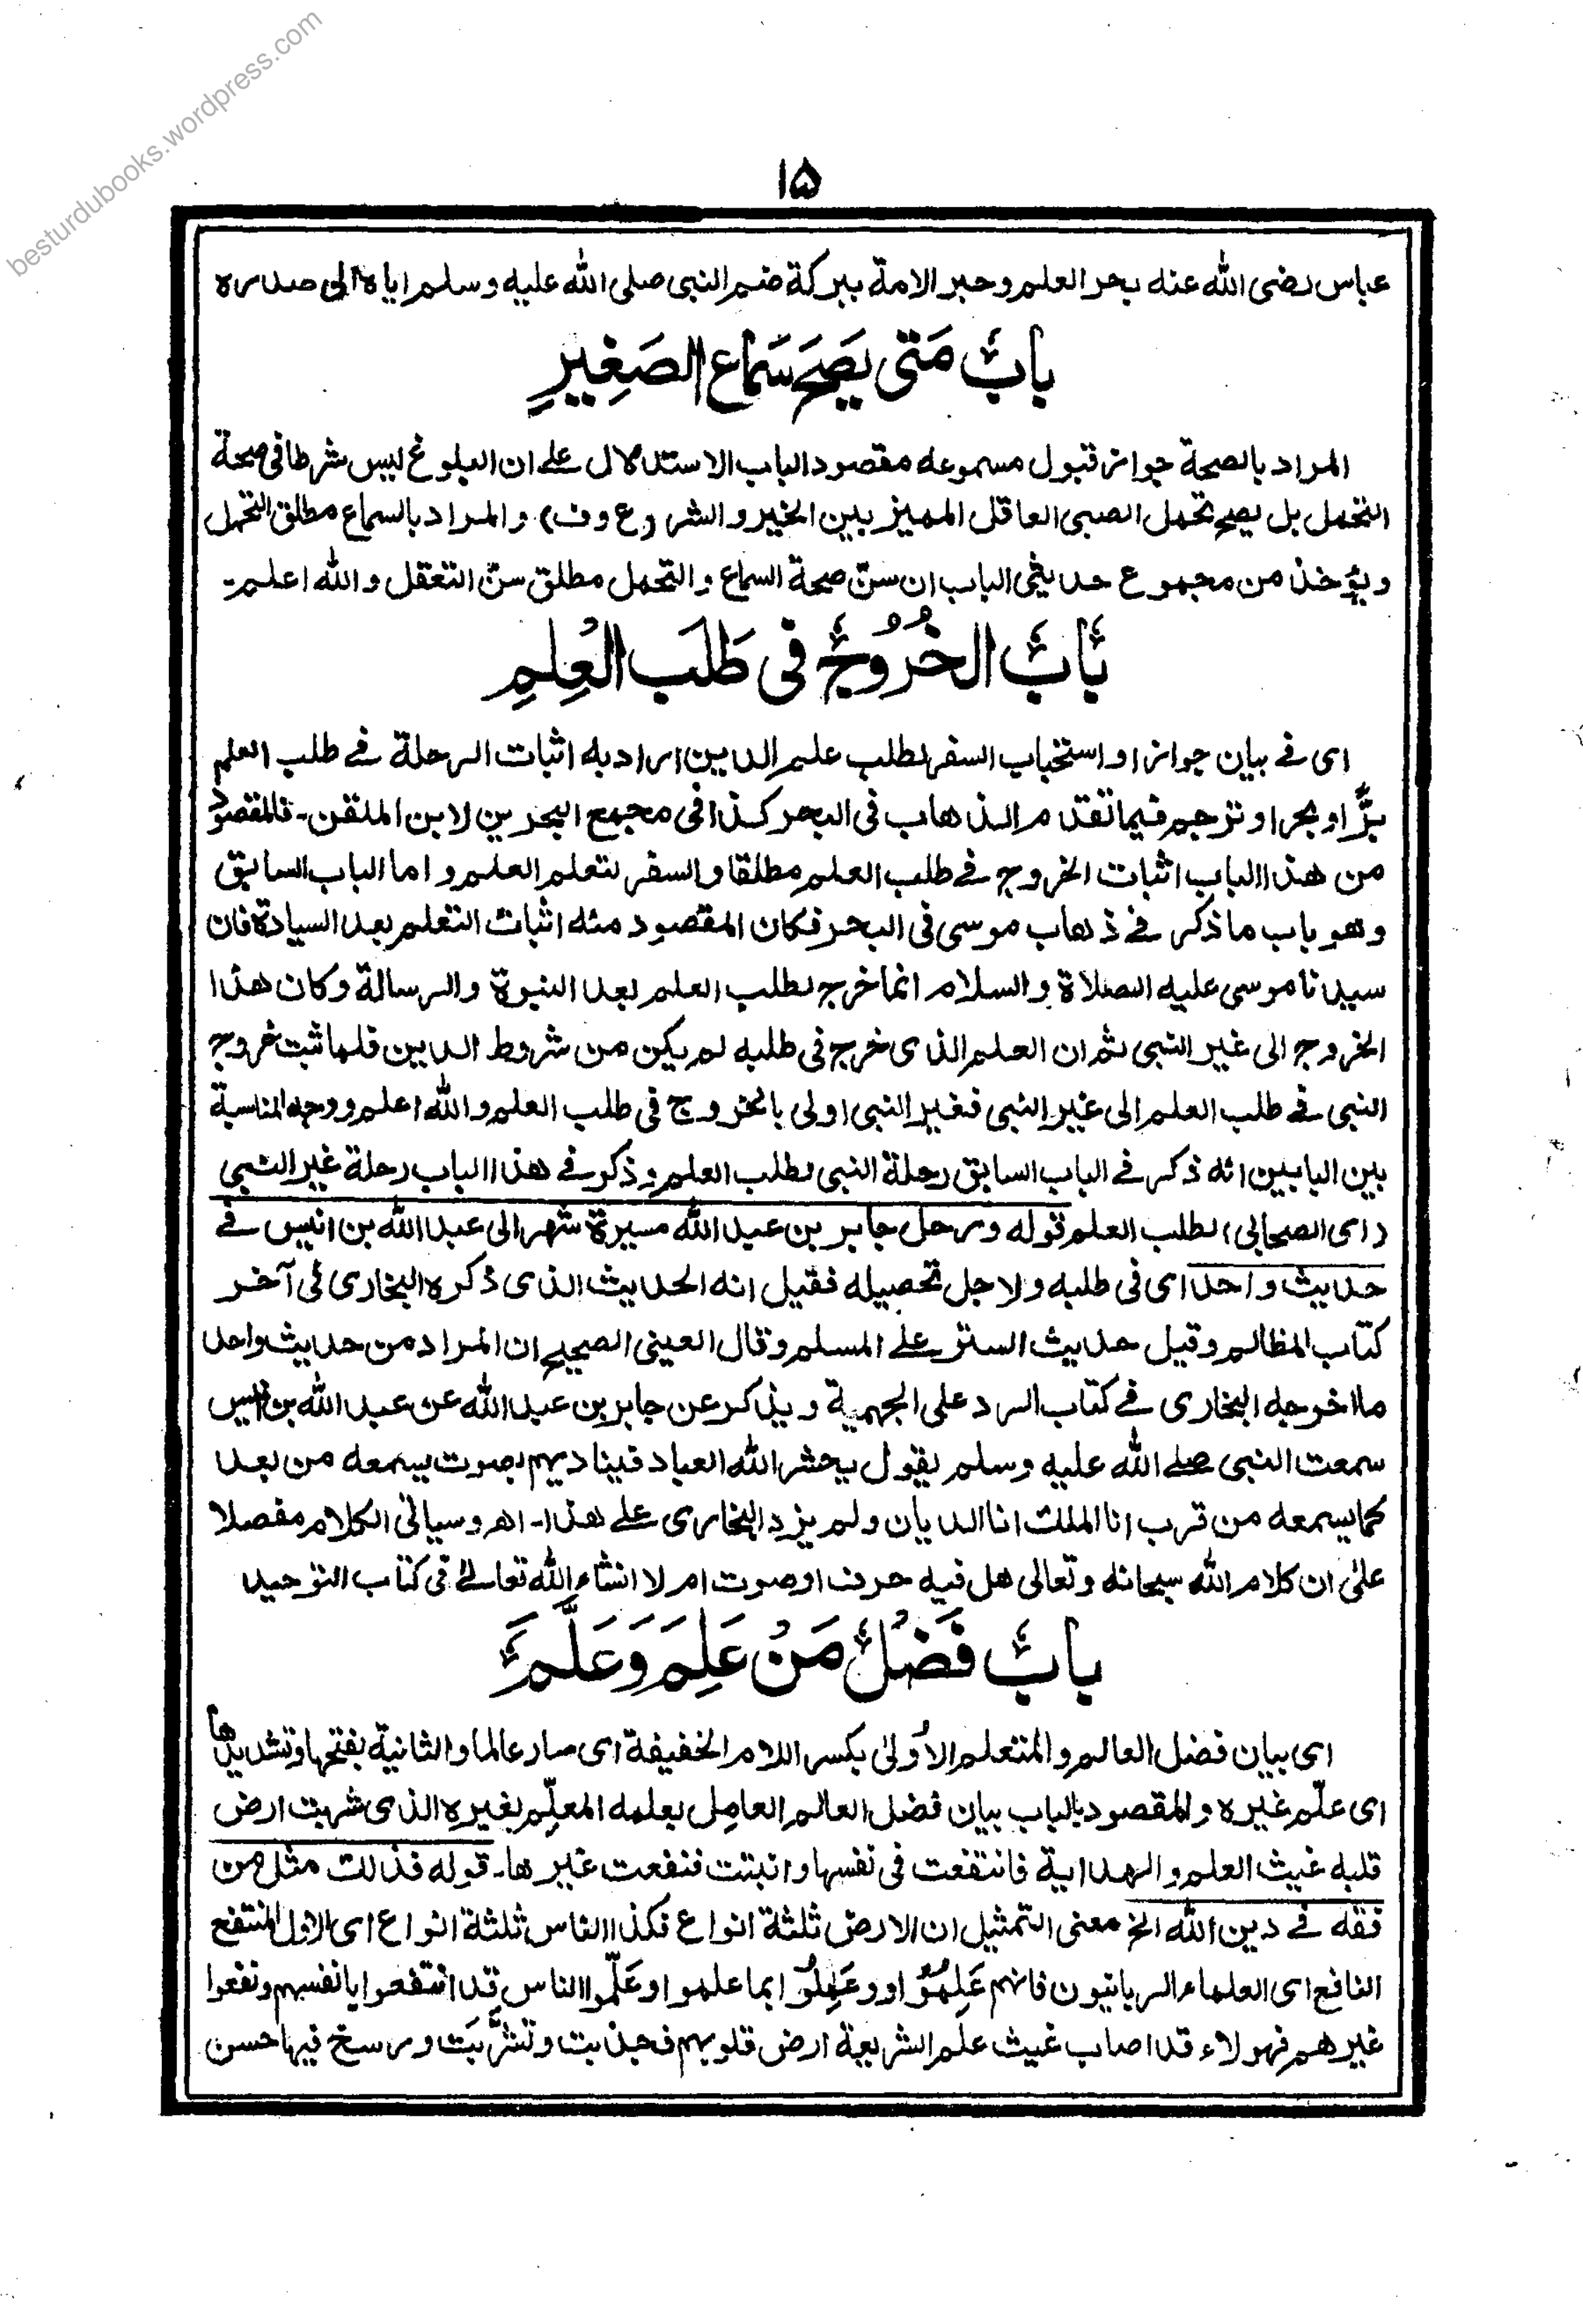 besturdubooks.wordpress.com
١۵
عباس رضى الله عنه بحر العلم وحبر الامة ببركة ضم النبى صلى الله عليه وسلم اياه الى صدره
بابٌ مَتٰى يَصَحَ سَمَاع الصَغِيرِ
المراد بالصحة جواز قبول مسموعه مقصود الباب الاستدلال على ان البلوغ ليس شرطا فى صحة
التحمل بل يصح تحمل الصبى العاقل المميز بين الخير والشر (ع وف) والمراد بالسماع مطلق التحمل
ويؤخذ من مجموع حديثى الباب ان سنّ صحة السماع والتحمل مطلق سنّ التعقل والله اعلم۔
بَابُ الخُرُوجِ فى طَلَبِ العِلمِ
اى فى بيان جواز او استحباب السفر لطلب علم الدين اراد به اثبات الرحلة فى طلب العلم
برًّا او بحرا و ترجم فيما تقدم الذهاب فى البحر كذا فى مجمع البحرين لابن الملقن۔ فالمقصود
من هذا الباب اثبات الخروج فى طلب العلم مطلقا والسفر لتعلم العلم و اما الباب السابق
وهو باب ما ذكر فى ذهاب موسى فى البحر فكان المقصود منه اثبات التعلم بعد السيادة فان
سيدنا موسى عليه الصلاة والسلام انما خرج لطلب العلم بعد النبوة والرسالة وكان هذا
الخروج الى غير النبى ثم ان العلم الذى خرج فى طلبه لم يكن من شروط الدين فلما ثبت خروج
النبى فى طلب العلم الى غير النبى فغير النبى اولى بالخروج فى طلب العلم والله اعلم ووجه المناسبة
بين البابين انه ذكر فى الباب السابق رحلة النبى لطلب العلم وذكر فى هذا الباب رحلة غير النبى
(اى الصحابى) لطلب العلم قوله ورحل جابر بن عبد الله مسيرة شهر الى عبد الله بن انيس فى
حديث واحد اى فى طلبه ولاجل تحصيله فقيل انه الحديث الذى ذكره البخارى فى آخر
كتاب المظالم وقيل حديث الستر على المسلم وقال العينى الصحيح ان المراد من حديث واحد
ما اخرجه البخارى فى كتاب الرد على الجهمية ويذكر عن جابر بن عبد الله عن عبد الله بن انيس
سمعت النبى صلى الله عليه وسلم يقول يحشر الله العباد فيناديهم بصوت يسمعه من بعد
كما يسمعه من قرب انا الملك انا الديان ولم يزد البخارى على هذا۔ اهـ وسياتى الكلام مفصلا
على ان كلام الله سبحانه وتعالى هل فيه حرف او صوت ام لا انشاء الله تعالى فى كتاب التوحيد
بابُ فَضلِ مَنْ عَلِمَ وَعَلَّمَ
اى بيان فضل العالم والمتعلم الأولى بكسر اللام الخفيفة اى صار عالما والثانية بفتحها وتشديدها
اى علّم غيره والمقصود بالباب بيان فضل العالم العامل بعلمه المعلّم بغيره الذى شربت ارض
قلبه غيث العلم والهداية فانتفعت فى نفسها و انبتت فنفعت غيرها۔ قوله فذلك مثل من
فقه فى دين الله الخ معنى التمثيل ان الارض ثلثة انواع فكذا الناس ثلثة انواع اى الاول المنتفع
النافع اى العلماء الربانيون فانهم عَلِمُوْا و وعَمِلُوْا بما علموا وعَلّموا الناس قد انتفعوا بانفسهم ونفعوا
غيرهم فهولاء قد اصاب غيث علم الشريعة ارض قلوبهم فجذبت وتشَرَّبَت ورسخ فيها حسن